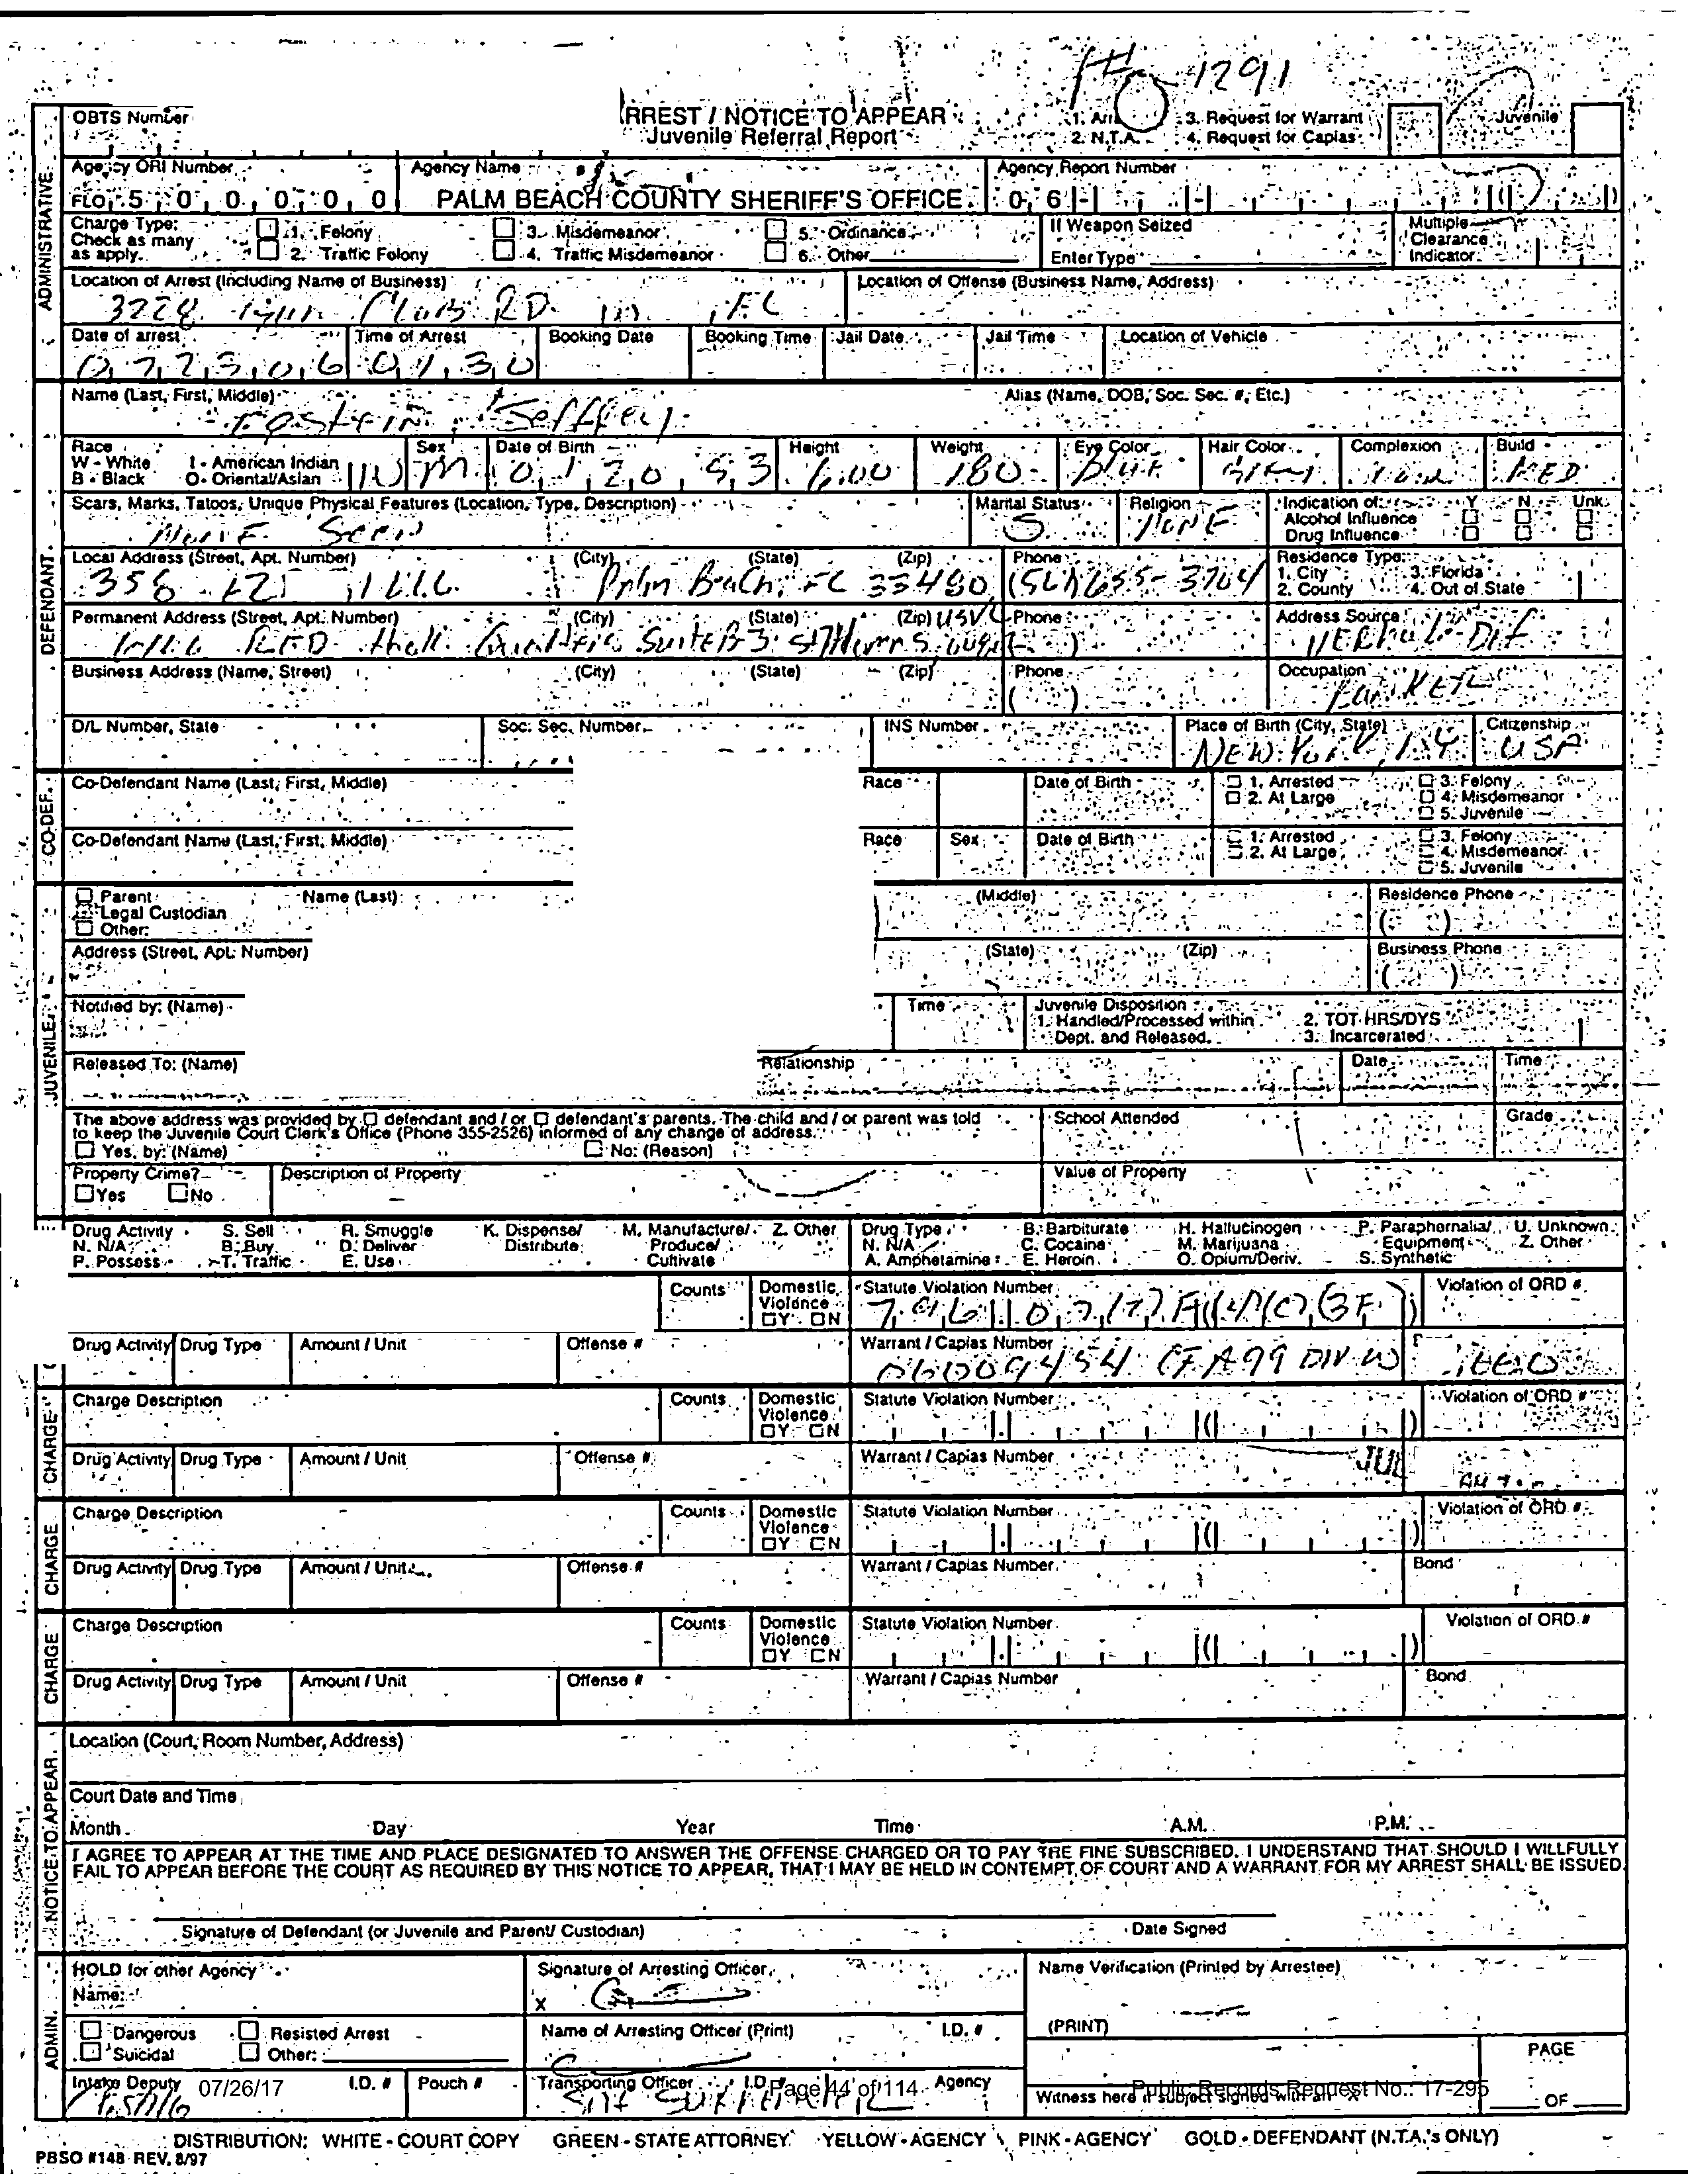 1291
OBTS Number
RREST / NOTICE TO APPEAR
Juvenile Referral Report
2. N.T.A.
3. Request for Warrant
4. Request for Capias
Juvenile
ADMINISTRATIVE
Agency ORI Number
FLO 5 0 0 0 0 0
Agency Name
PALM BEACH COUNTY SHERIFF'S OFFICE
Agency Report Number
0 6
Charge Type:
Check as many
as apply.
1. Felony
2. Traffic Felony
3. Misdemeanor
4. Traffic Misdemeanor
5. Ordinance
6. Other
If Weapon Seized
Enter Type
Multiple
Clearance
Indicator
Location of Arrest (Including Name of Business)
3228 Gun Club RD
Location of Offense (Business Name, Address)
Date of arrest
072306
Time of Arrest
0130
Booking Date
Booking Time
Jail Date
Jail Time
Location of Vehicle
DEFENDANT
Name (Last, First, Middle)
Epstein, Jeffrey
Alias (Name, DOB, Soc. Sec. #, Etc.)
Race
W - White
B - Black
I - American Indian
O - Oriental/Asian
W
Sex
M
Date of Birth
01 20 53
Height
6,00
Weight
180
Eye Color
Blue
Hair Color
Complexion
Build
MED
Scars, Marks, Tatoos, Unique Physical Features (Location, Type, Description)
None Seen
Marital Status
S
Religion
NONE
Indication of:
Alcohol Influence
Drug Influence
Y N Unk.
Local Address (Street, Apt. Number) (City) (State) (Zip)
358 Palm Beach, FL 33480
Phone
(561) 655-3704
Residence Type:
1. City
2. County
3. Florida
4. Out of State
Permanent Address (Street, Apt. Number) (City) (State) (Zip) USVI
RED Suite B3
Phone
Address Source
VERBAL-DEF
Business Address (Name, Street) (City) (State) (Zip)
Phone
Occupation
D/L Number, State
Soc. Sec. Number
INS Number
Place of Birth (City, State)
NEW York, NY
Citizenship
USA
CO-DEF.
Co-Defendant Name (Last, First, Middle)
Race
Date of Birth
1. Arrested
2. At Large
3. Felony
4. Misdemeanor
5. Juvenile
Co-Defendant Name (Last, First, Middle)
Race
Sex
Date of Birth
1. Arrested
2. At Large
3. Felony
4. Misdemeanor
5. Juvenile
JUVENILE
Parent
Legal Custodian
Other:
Name (Last)
(Middle)
Residence Phone
Address (Street, Apt. Number)
(State) (Zip)
Business Phone
Notified by: (Name)
Time
Juvenile Disposition
1. Handled/Processed within
Dept. and Released.
2. TOT HRS/DYS
3. Incarcerated
Released To: (Name)
Relationship
Date
Time
The above address was provided by defendant and / or defendant's parents. The child and / or parent was told
to keep the Juvenile Court Clerk's Office (Phone 355-2526) informed of any change of address.
Yes, by: (Name)
No: (Reason)
School Attended
Grade
Property Crime?
Yes No
Description of Property
Value of Property
Drug Activity
N. N/A
P. Possess
S. Sell
B. Buy
T. Traffic
R. Smuggle
D. Deliver
E. Use
K. Dispense/
Distribute
M. Manufacture/
Produce/
Cultivate
Z. Other
Drug Type
N. N/A
A. Amphetamine
B. Barbiturate
C. Cocaine
E. Heroin
H. Hallucinogen
M. Marijuana
O. Opium/Deriv.
P. Paraphernalia/
Equipment
S. Synthetic
U. Unknown
Z. Other
Counts
Domestic
Violence
Y N
Statute Violation Number
Violation of ORD #
Drug Activity
Drug Type
Amount / Unit
Offense #
Warrant / Capias Number
CHARGE
Charge Description
Counts
Domestic
Violence
Y N
Statute Violation Number
Violation of ORD #
Drug Activity
Drug Type
Amount / Unit
Offense #
Warrant / Capias Number
JUL
CHARGE
Charge Description
Counts
Domestic
Violence
Y N
Statute Violation Number
Violation of ORD #
Drug Activity
Drug Type
Amount / Unit
Offense #
Warrant / Capias Number
Bond
CHARGE
Charge Description
Counts
Domestic
Violence
Y N
Statute Violation Number
Violation of ORD #
Drug Activity
Drug Type
Amount / Unit
Offense #
Warrant / Capias Number
Bond
NOTICE TO APPEAR
Location (Court, Room Number, Address)
Court Date and Time
Month Day Year Time A.M. P.M.
I AGREE TO APPEAR AT THE TIME AND PLACE DESIGNATED TO ANSWER THE OFFENSE CHARGED OR TO PAY THE FINE SUBSCRIBED. I UNDERSTAND THAT SHOULD I WILLFULLY
FAIL TO APPEAR BEFORE THE COURT AS REQUIRED BY THIS NOTICE TO APPEAR, THAT I MAY BE HELD IN CONTEMPT OF COURT AND A WARRANT FOR MY ARREST SHALL BE ISSUED.
Signature of Defendant (or Juvenile and Parent/ Custodian)
Date Signed
ADMIN.
HOLD for other Agency
Name:
Signature of Arresting Officer
X
Name Verification (Printed by Arrestee)
Dangerous
Suicidal
Resisted Arrest
Other:
Name of Arresting Officer (Print)
I.D. #
(PRINT)
PAGE
Intake Deputy
07/26/17
I.D. #
Pouch #
Transporting Officer
I.D. #
Page 44 of 114
Agency
Witness here if subject signed with an "X"
Public Records Request No.: 17-295
OF
DISTRIBUTION: WHITE - COURT COPY GREEN - STATE ATTORNEY YELLOW - AGENCY PINK - AGENCY GOLD - DEFENDANT (N.T.A.'s ONLY)
PBSO #148 REV. 8/97